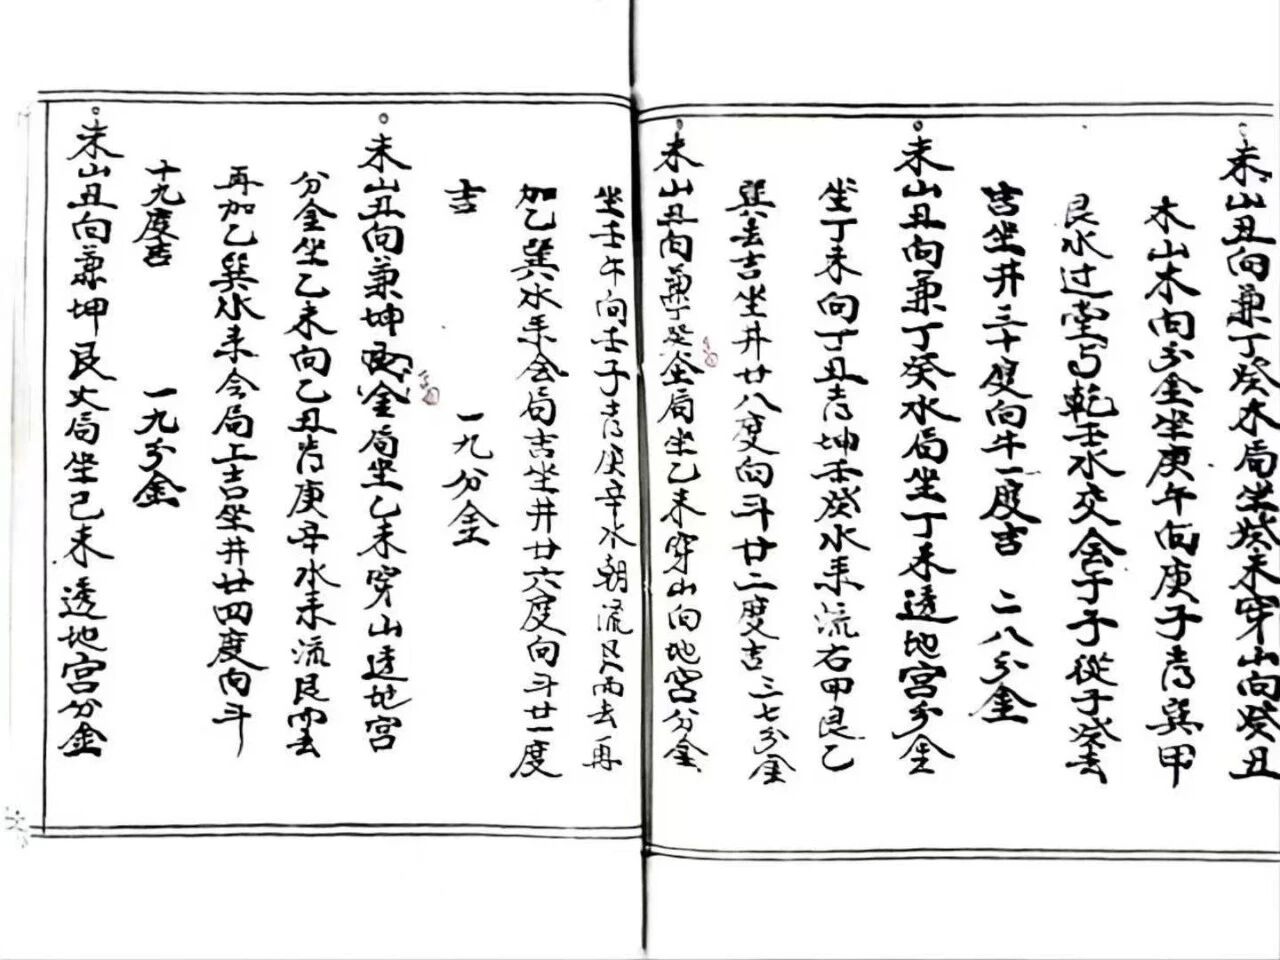 未山丑向兼丁癸木局坐癸未穿山向癸丑
木山木向分金坐庚午向庚子吉巽甲
艮水过堂与乾壬水交會于子從子癸去
吉坐井三十度向牛一度吉 二八分金
未山丑向兼丁癸水局坐丁未透地宫分金
坐丁未向丁丑吉坤壬癸水耒流右甲艮乙
巽去吉坐井廿八度向斗廿二度吉三七分金
未山丑向兼丁癸金局坐乙未穿山向地宫分金
坐壬午向壬子吉庚辛水朝流艮而去再
加乙巽水耒会局吉坐井廿六度向斗廿一度
吉 一九分金
未山丑向兼坤艮金局坐乙未穿山透地宫
分金坐乙未向乙丑吉庚辛水耒流艮而去
再加乙巽水耒会局上吉坐井廿四度向斗
十九度吉 一九分金
未山丑向兼坤艮火局坐己未透地宫分金